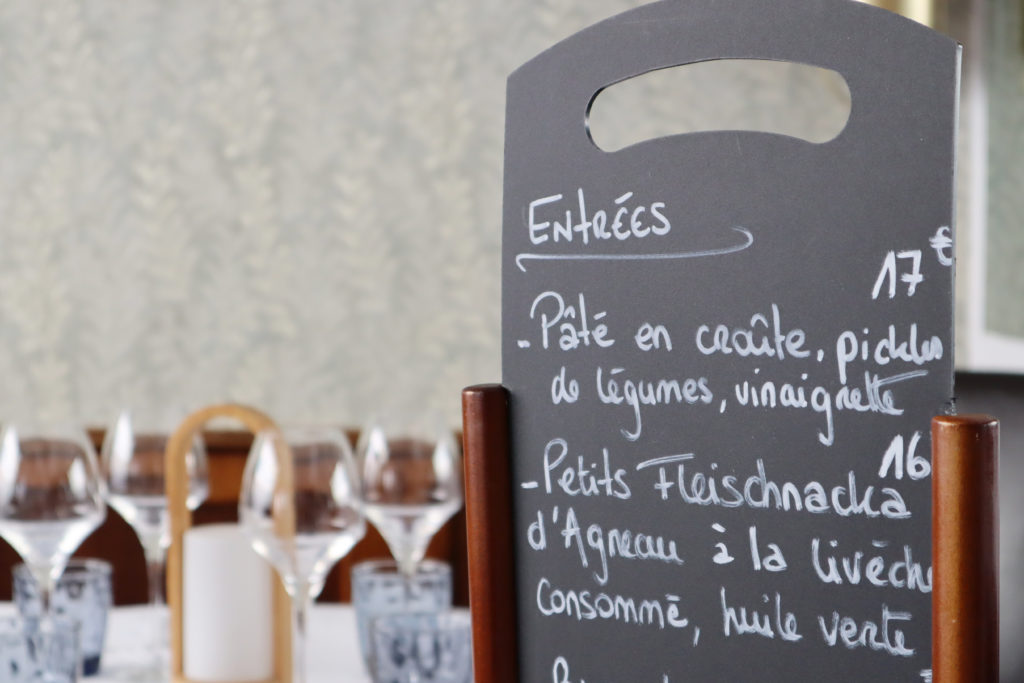 Entrées
17€
- Pâté en croûte, pickles
de légumes, vinaigrette
16
- Petits Fleischnacka
d'Agneau à la livèche
consommé, huile verte